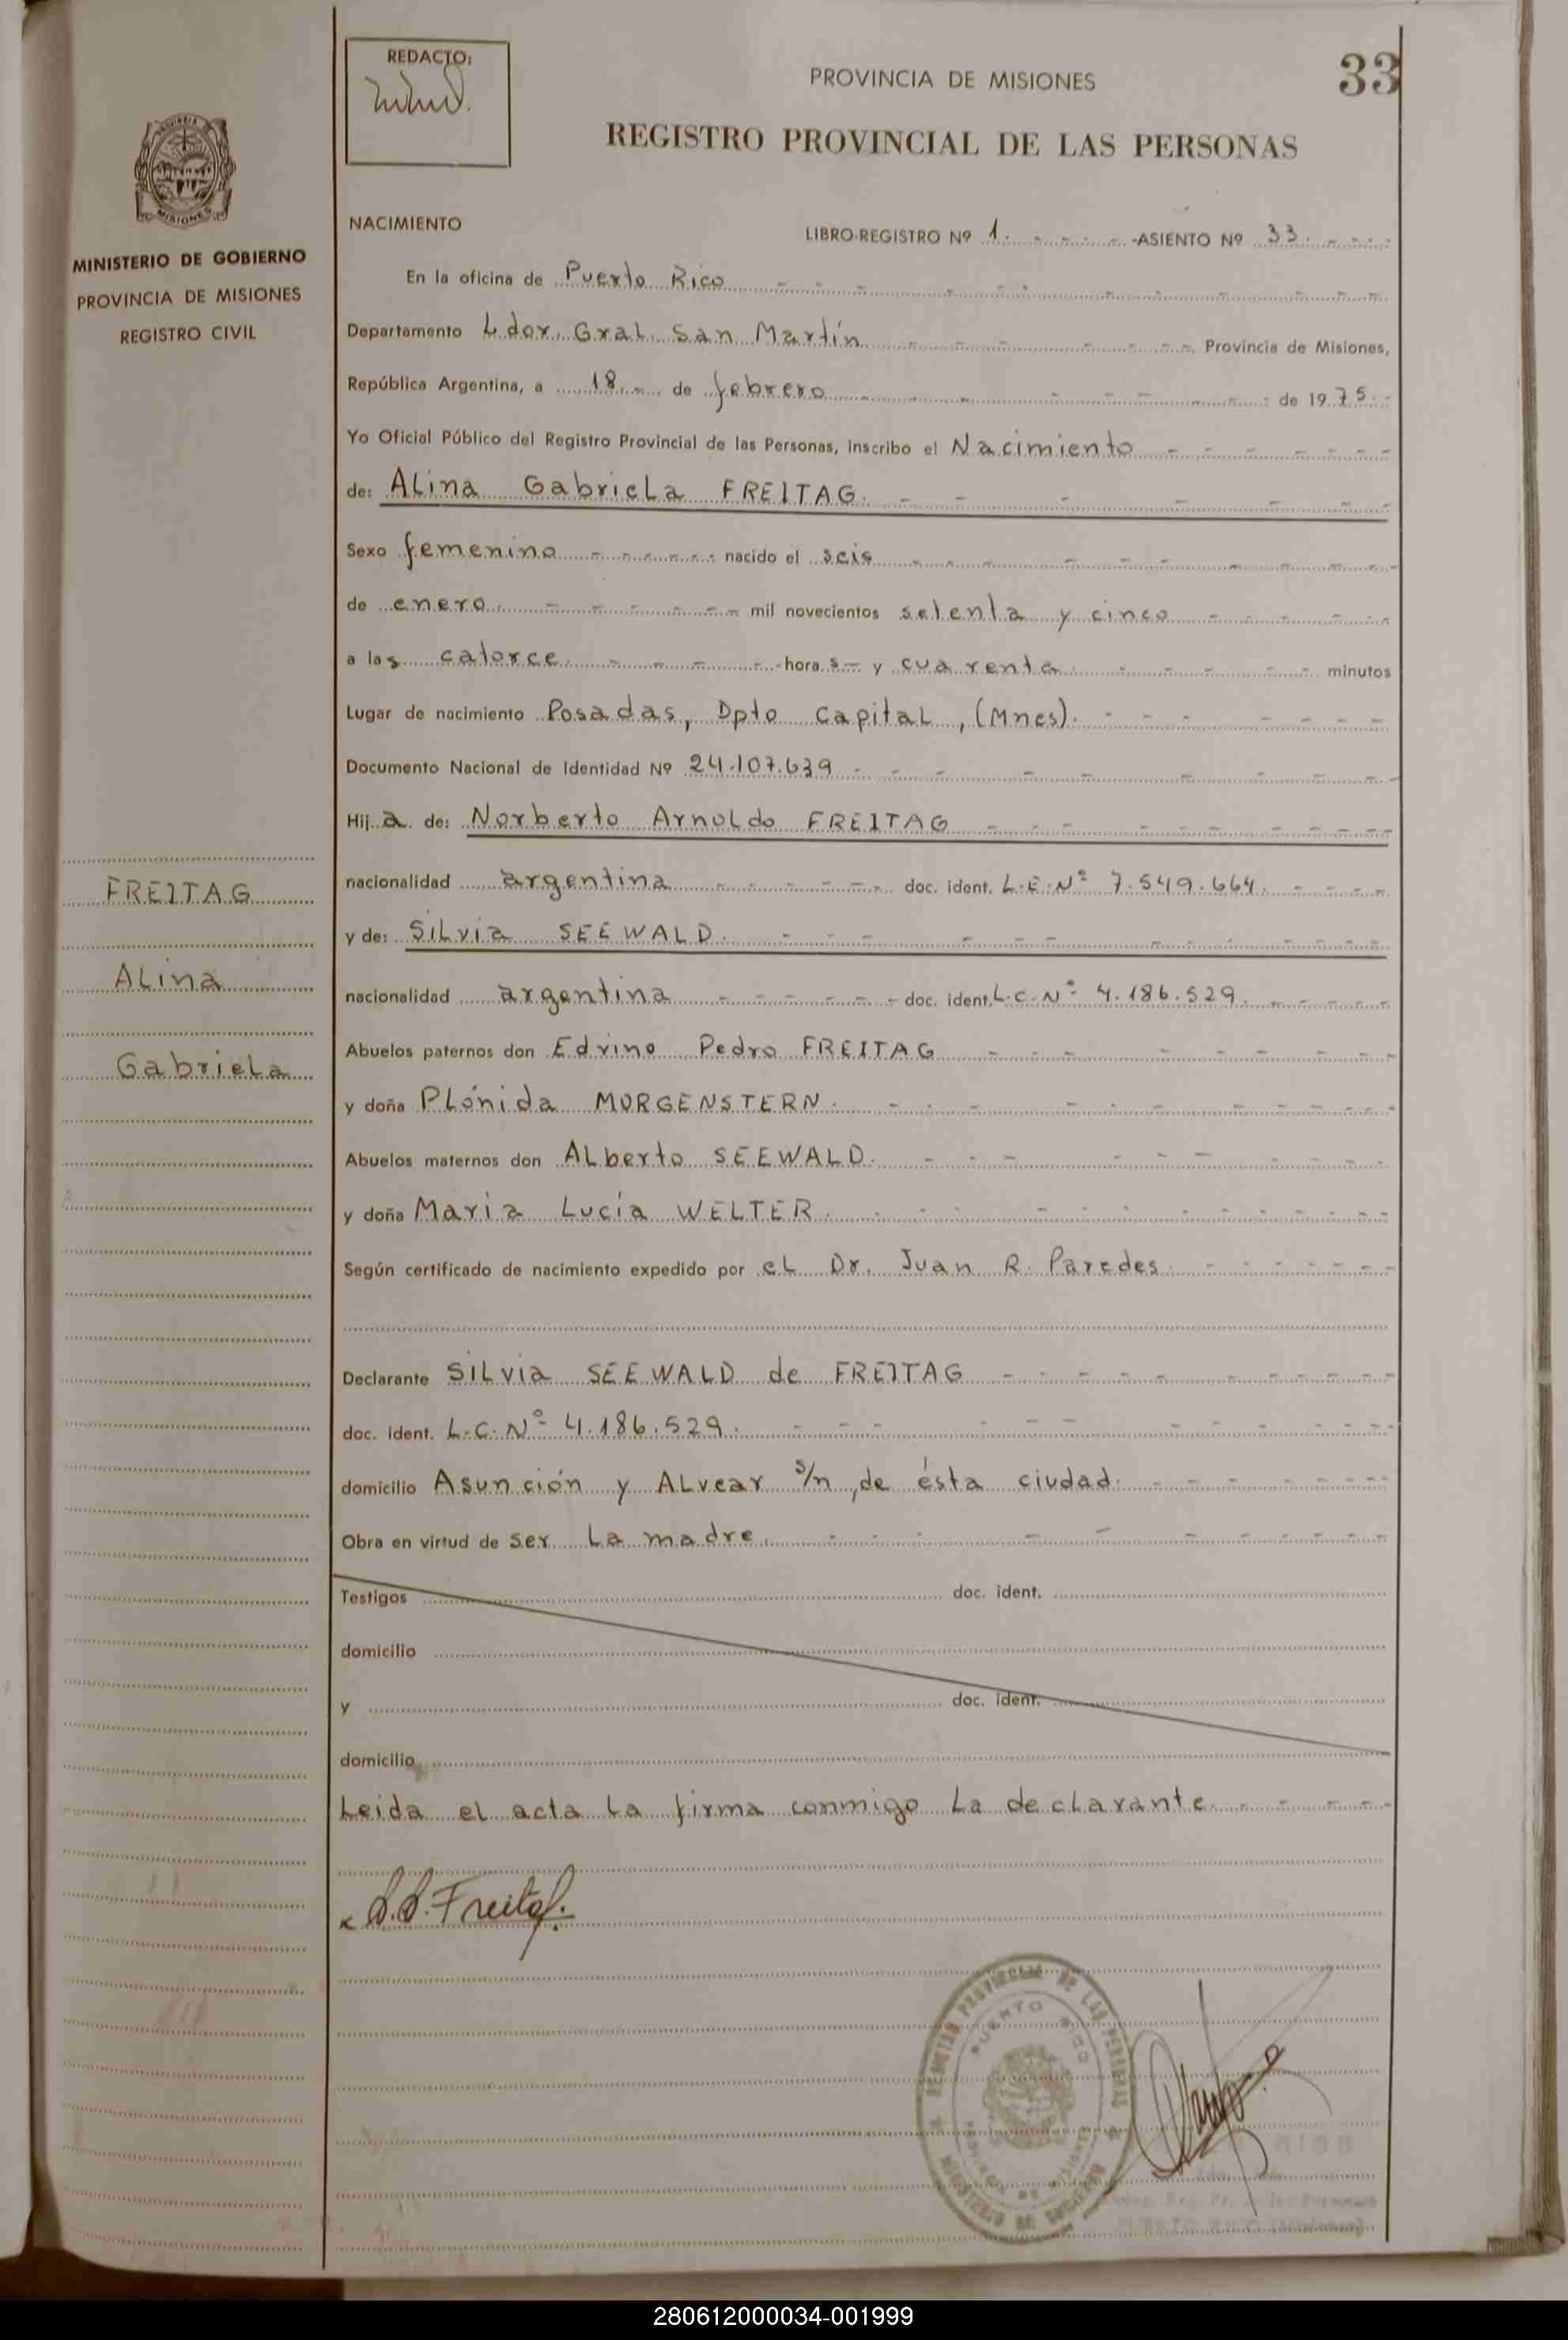 REDACTO:
PROVINCIA DE MISIONES
33
REGISTRO PROVINCIAL DE LAS PERSONAS
MISIONES
MINISTERIO DE GOBIERNO
PROVINCIA DE MISIONES
REGISTRO CIVIL
NACIMIENTO
LIBRO-REGISTRO Nº 1. - ASIENTO Nº 33.
En la oficina de Puerto Rico
Departamento Ldor. Gral. San Martín Provincia de Misiones,
República Argentina, a 18 de febrero de 1975.
Yo Oficial Público del Registro Provincial de las Personas, inscribo el Nacimiento
de: ALina GabrieLa FREITAG.
Sexo femenino nacido el seis
de enero mil novecientos setenta y cinco
a las catorce horas y cuarenta minutos
Lugar de nacimiento Posadas, Dpto CapitaL, (Mnes).
Documento Nacional de Identidad Nº 24.107.639
Hija de: Norberto ArnoLdo FREITAG
FREITAG
nacionalidad argentina doc. ident. L.E.Nº 7.549.664.
y de: SiLvia SEEWALD.
ALina
nacionalidad argentina doc. ident. L.C.Nº 4.186.529.
Abuelos paternos don Edvino Pedro FREITAG
GabrieLa
y doña PLónida MORGENSTERN.
Abuelos maternos don ALberto SEEWALD.
y doña Maria Lucía WELTER.
Según certificado de nacimiento expedido por eL Dr. Juan R. Paredes
Declarante SiLvia SEEWALD de FREITAG
doc. ident. L.C.Nº 4.186.529.
domicilio Asunción y ALvear s/n, de ésta ciudad.
Obra en virtud de ser La madre.
Testigos doc. ident.
domicilio
y doc. ident.
domicilio
Leida el acta La firma conmigo La decLarante
x S.S. Freitag.
REGISTRO PROVINCIAL DE LAS PERSONAS
PUERTO RICO
PROVINCIA DE MISIONES
MINISTERIO DE GOBIERNO
280612000034-001999